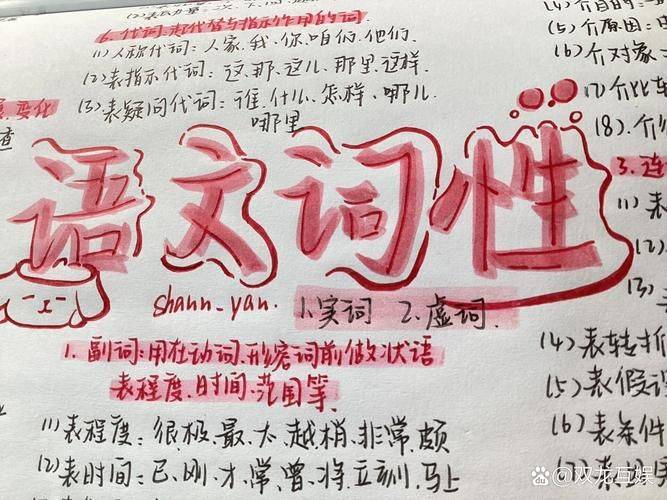 6.代词:起代替与指示作用的词
(1)人称代词:人家.我.你.咱们.他们.
(2)表指示代词:这.那.这儿.那里.这样.
(3)表疑问代词:谁.什么.怎样.哪儿
哪里
变化
查
语文词性
shann-yan.
1.实词 2.虚词.
1.副词:用在动词.形容词前做状语
表程度.时间.范围等.
(1)表程度:很.极.最.太.越.稍.非常.颇
(2)表时间:已.刚.才.常.曾.将.立刻.马上
(4)介目的:
(5)介原因:
(6)介对象:
(7)介比较
(8).介
3.连
(1)表
(2)
(3)
(4)表转折
(5)表假设
(6)表条件
双龙互娱